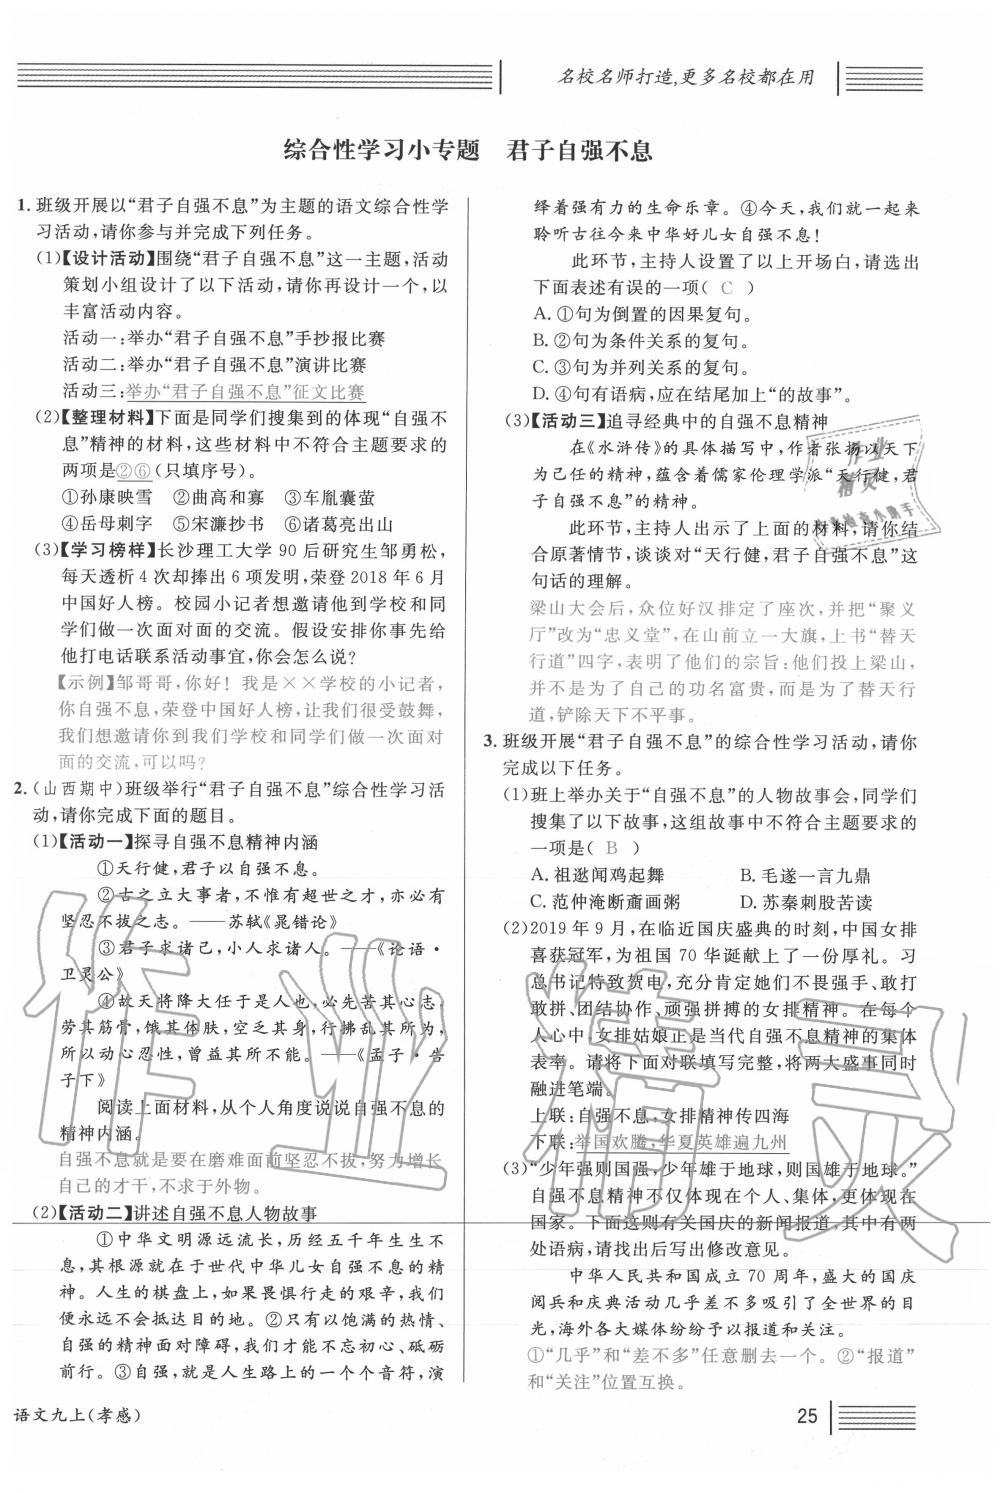 名校名师打造,更多名校都在用
综合性学习小专题　君子自强不息
1. 班级开展以“君子自强不息”为主题的语文综合性学
习活动,请你参与并完成下列任务。
(1)【设计活动】围绕“君子自强不息”这一主题,活动
策划小组设计了以下活动,请你再设计一个,以
丰富活动内容。
活动一:举办“君子自强不息”手抄报比赛
活动二:举办“君子自强不息”演讲比赛
活动三:举办“君子自强不息”征文比赛
(2)【整理材料】下面是同学们搜集到的体现“自强不
息”精神的材料,这些材料中不符合主题要求的
两项是②⑥(只填序号)。
①孙康映雪　②曲高和寡　③车胤囊萤
④岳母刺字　⑤宋濂抄书　⑥诸葛亮出山
(3)【学习榜样】长沙理工大学 90 后研究生邹勇松,
每天透析 4 次却捧出 6 项发明,荣登 2018 年 6 月
中国好人榜。校园小记者想邀请他到学校和同
学们做一次面对面的交流。假设安排你事先给
他打电话联系活动事宜,你会怎么说?
【示例】邹哥哥,你好! 我是××学校的小记者,
你自强不息,荣登中国好人榜,让我们很受鼓舞,
我们想邀请你到我们学校和同学们做一次面对
面的交流,可以吗?
2. (山西期中)班级举行“君子自强不息”综合性学习活
动,请你完成下面的题目。
(1)【活动一】探寻自强不息精神内涵
①天行健,君子以自强不息。
②古之立大事者,不惟有超世之才,亦必有
坚忍不拔之志。——苏轼《晁错论》
③君子求诸己,小人求诸人。——《论语·
卫灵公》
④故天将降大任于是人也,必先苦其心志,
劳其筋骨,饿其体肤,空乏其身,行拂乱其所为,
所以动心忍性,曾益其所不能。——《孟子·告
子下》
阅读上面材料,从个人角度说说自强不息的
精神内涵。
自强不息就是要在磨难面前坚忍不拔,努力增长
自己的才干,不求于外物。
(2)【活动二】讲述自强不息人物故事
①中华文明源远流长,历经五千年生生不
息,其根源就在于世代中华儿女自强不息的精
神。人生的棋盘上,如果畏惧行走的艰辛,我们
便永远不会抵达目的地。②只有以饱满的热情、
自强的精神面对障碍,我们才能不忘初心、砥砺
前行。③自强,就是人生路上的一个个音符,演
绎着强有力的生命乐章。④今天,我们就一起来
聆听古往今来中华好儿女自强不息!
此环节,主持人设置了以上开场白,请选出
下面表述有误的一项( C )
A. ①句为倒置的因果复句。
B. ②句为条件关系的复句。
C. ③句为并列关系的复句。
D. ④句有语病,应在结尾加上“的故事”。
(3)【活动三】追寻经典中的自强不息精神
在《水浒传》的具体描写中,作者张扬以天下
为己任的精神,蕴含着儒家伦理学派“天行健,君
子自强不息”的精神。
此环节,主持人出示了上面的材料,请你结
合原著情节,谈谈对“天行健,君子自强不息”这
句话的理解。
梁山大会后,众位好汉排定了座次,并把“聚义
厅”改为“忠义堂”,在山前立一大旗,上书“替天
行道”四字,表明了他们的宗旨:他们投上梁山,
并不是为了自己的功名富贵,而是为了替天行
道,铲除天下不平事。
3. 班级开展“君子自强不息”的综合性学习活动,请你
完成以下任务。
(1)班上举办关于“自强不息”的人物故事会,同学们
搜集了以下故事,这组故事中不符合主题要求的
一项是( B )
A. 祖逖闻鸡起舞　B. 毛遂一言九鼎
C. 范仲淹断齑画粥　D. 苏秦刺股苦读
(2)2019 年 9 月,在临近国庆盛典的时刻,中国女排
喜获冠军,为祖国 70 华诞献上了一份厚礼。习
总书记特致贺电,充分肯定她们不畏强手、敢打
敢拼、团结协作、顽强拼搏的女排精神。在每个
人心中,女排姑娘正是当代自强不息精神的集体
表率。请将下面对联填写完整,将两大盛事同时
融进笔端。
上联:自强不息,女排精神传四海
下联:举国欢腾,华夏英雄遍九州
(3)“少年强则国强,少年雄于地球,则国雄于地球。”
自强不息精神不仅体现在个人、集体,更体现在
国家。下面这则有关国庆的新闻报道,其中有两
处语病,请找出后写出修改意见。
中华人民共和国成立 70 周年,盛大的国庆
阅兵和庆典活动几乎差不多吸引了全世界的目
光,海外各大媒体纷纷予以报道和关注。
①“几乎”和“差不多”任意删去一个。②“报道”
和“关注”位置互换。
作业精灵
作业
精灵
语文九上(孝感)
25